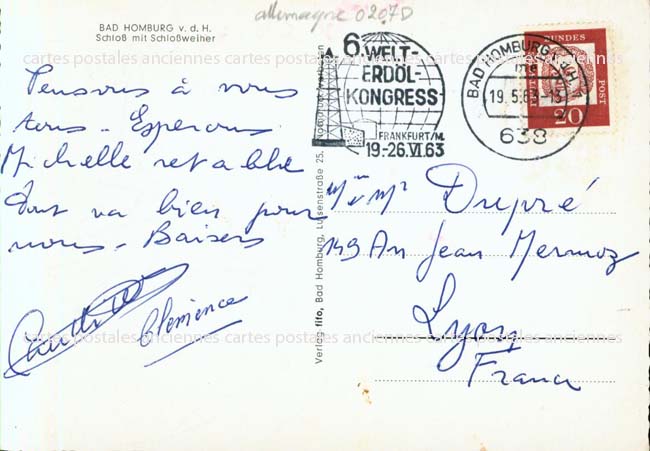 allemagne 0207D
BAD HOMBURG v. d. H.
Schloß mit Schloßweiher
Pensons à vous
tous - Esperons
Michelle retablie
Tout va bien pour
nous - Baisers
Clemence
Verlag fifo, Bad Homburg, Luisenstraße 25.
6. WELT-
ERDÖL-
KONGRESS
FRANKFURT/M.
19.-26.VI.63
BAD HOMBURG v.d.H.
19.5.63-15
638
BUNDES
POST
20
Mme et Mr Dupré
149 An Jean Mermoz
Lyon
France
cartes postales anciennes cartes postales anciennes cartes postales anciennes
cartes postales anciennes cartes postales anciennes cartes postales anciennes